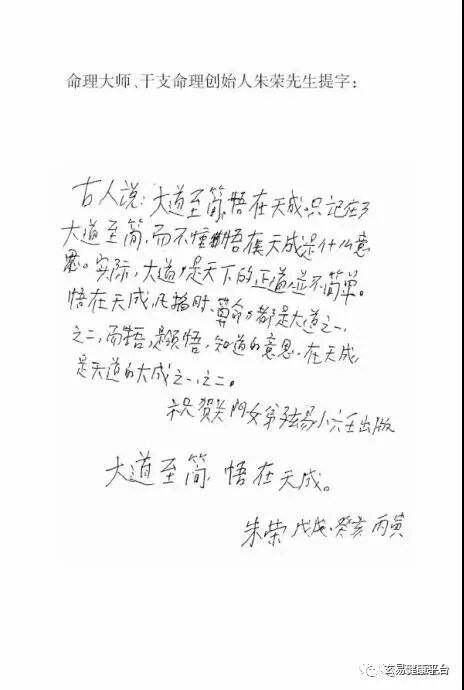 命理大师、干支命理创始人朱荣先生提字：
古人说：大道至简，悟在天成。只记在了
大道至简，而不懂悟在天成是什么意
思。实际，大道，是天下的正道，并不简单。
悟在天成，风水择时、算命都是大道之一、
之二，而悟，是领悟，知道的意思，在天成，
是天道的大成之一、之二。
祝贺关门女弟弦易小六壬出版
大道至简，悟在天成。
朱荣 戊戌、癸亥 丙寅
玄易健康平台